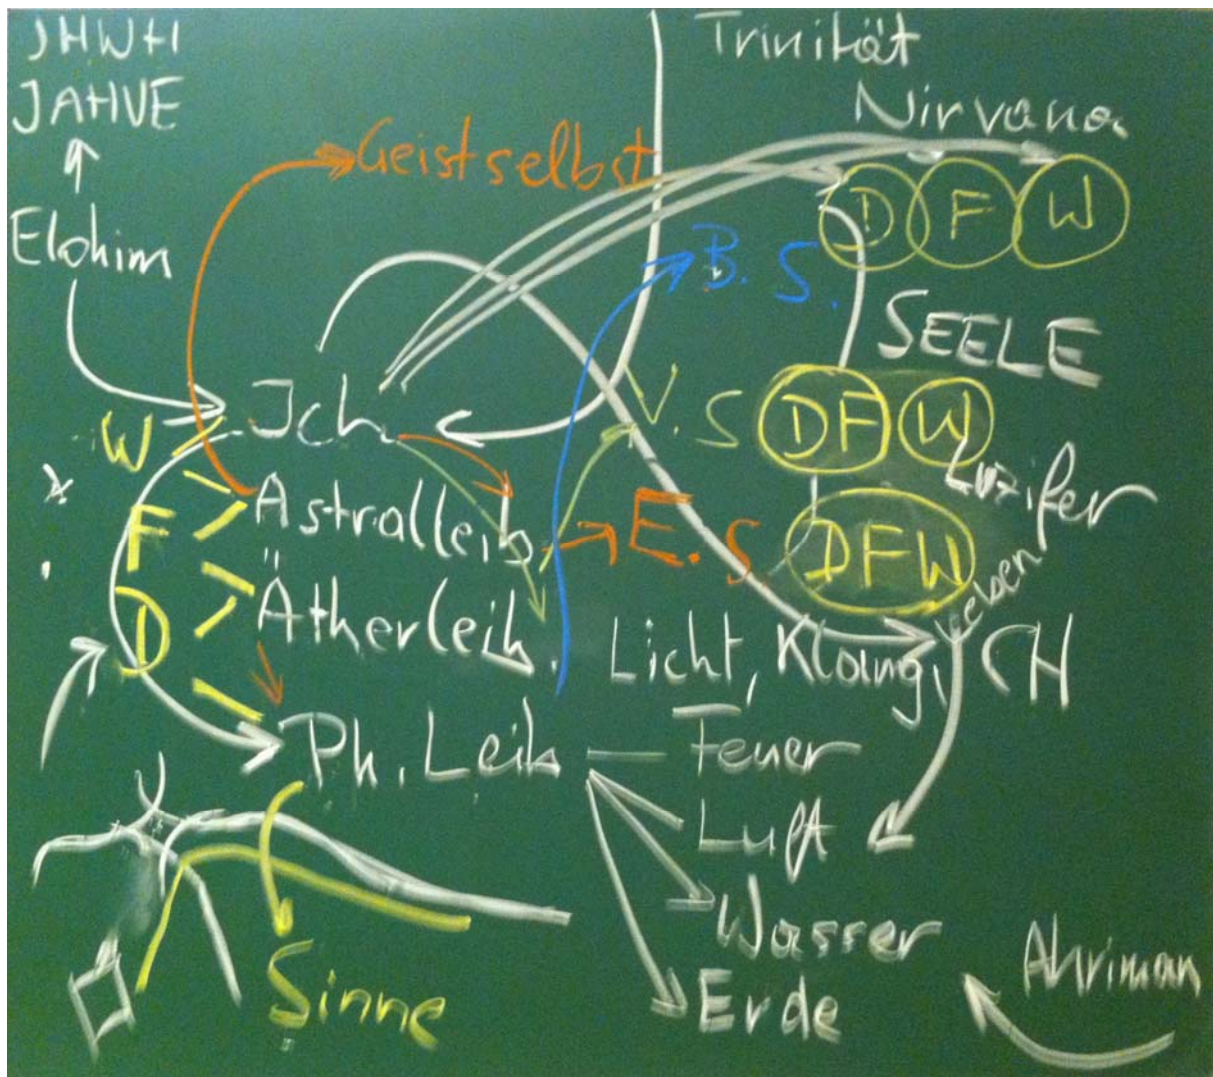 JHWH
JAHVE
Elohim
Trinität
Nirvana
Geistselbst
D F W
B. S.
SEELE
Ich
V. S
DF W
W
Luzifer
Astralleib
F
E. S.
DFW
Ätherleib.
D
Leben
Licht, Klang, CH
Ph. Leib
Feuer
Luft
Wasser
Erde
Ahriman
Sinne